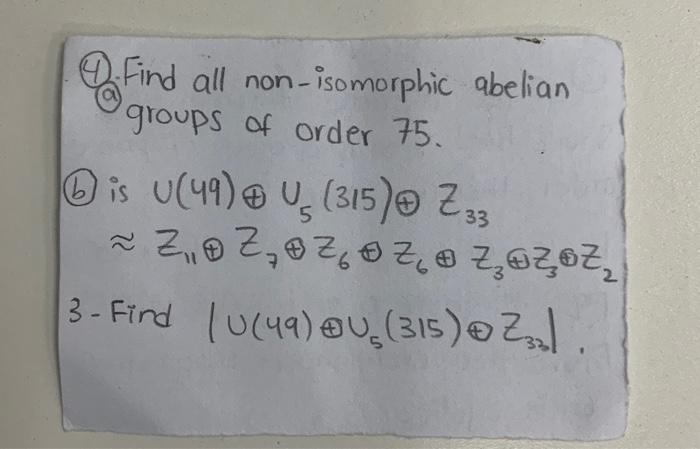 ④. Find all non-isomorphic abelian
ⓐ groups of order 75.
ⓑ is U(49) ⊕ U₅(315) ⊕ Z₃₃
≈ Z₁₁ ⊕ Z₇ ⊕ Z₆ ⊕ Z₆ ⊕ Z₃ ⊕ Z₃ ⊕ Z₂
3 - Find |U(49) ⊕ U₅(315) ⊕ Z₃₃|.